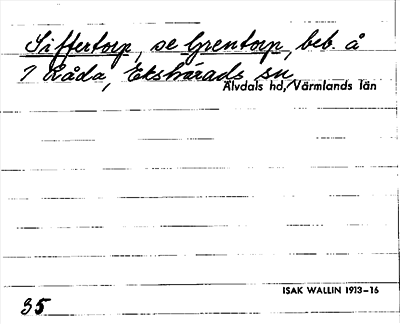 Siffertorp, se Grentorp, beb. å
7 Råda, Ekshärads sn,
Älvdals hd, Värmlands län
ISAK WALLIN 1913-16
35